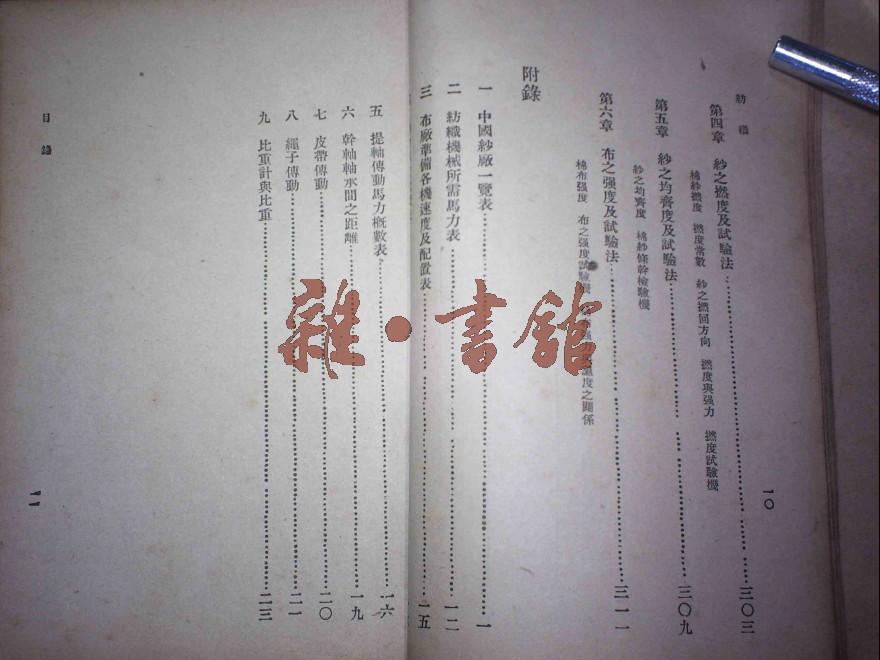 紡織
第四章 紗之撚度及試驗法 三〇三
棉紗撚度 撚度常數 紗之撚回方向 撚度與强力 撚度試驗機
第五章 紗之均齊度及試驗法 三〇九
紗之均齊度 棉紗條幹檢驗機
第六章 布之强度及試驗法 三一一
棉布强度 布之强度試驗機 濕度之關係
一〇
附錄
一 中國紗廠一覽表 一
二 紡織機械所需馬力表 一二
三 布廠準備各機速度及配置表 一五
五 提軸傳動馬力概數表 一六
六 幹軸軸承間之距離 一九
七 皮帶傳動 二〇
八 繩子傳動 二一
九 比重計與比重 二三
目錄
一一
雜·書館